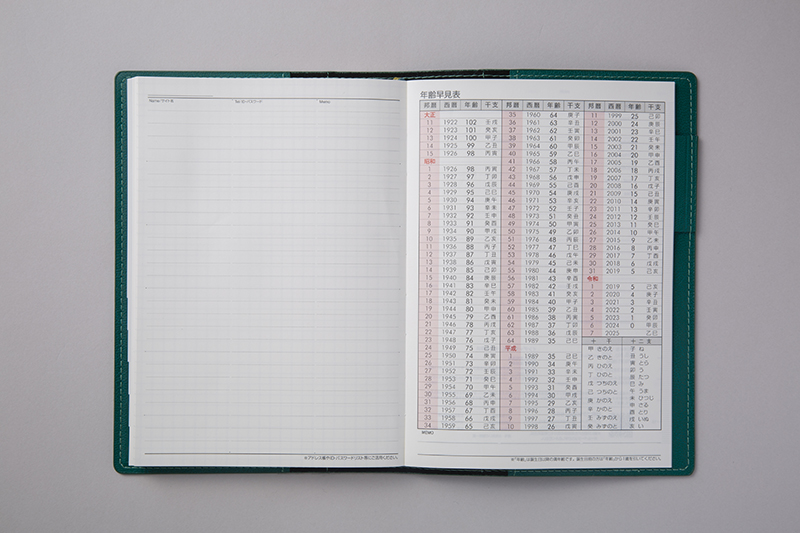 Name/サイト名 for ID・パスワード Memo
※アドレス欄やID・パスワードリスト等にご活用ください。
年齢早見表
邦暦 西暦 年齢 干支
大正
11 1922 102 壬戌
12 1923 101 癸亥
13 1924 100 甲子
14 1925 99 乙丑
15 1926 98 丙寅
昭和
1 1926 98 丙寅
2 1927 97 丁卯
3 1928 96 戊辰
4 1929 95 己巳
5 1930 94 庚午
6 1931 93 辛未
7 1932 92 壬申
8 1933 91 癸酉
9 1934 90 甲戌
10 1935 89 乙亥
11 1936 88 丙子
12 1937 87 丁丑
13 1938 86 戊寅
14 1939 85 己卯
15 1940 84 庚辰
16 1941 83 辛巳
17 1942 82 壬午
18 1943 81 癸未
19 1944 80 甲申
20 1945 79 乙酉
21 1946 78 丙戌
22 1947 77 丁亥
23 1948 76 戊子
24 1949 75 己丑
25 1950 74 庚寅
26 1951 73 辛卯
27 1952 72 壬辰
28 1953 71 癸巳
29 1954 70 甲午
30 1955 69 乙未
31 1956 68 丙申
32 1957 67 丁酉
33 1958 66 戊戌
34 1959 65 己亥
邦暦 西暦 年齢 干支
35 1960 64 庚子
36 1961 63 辛丑
37 1962 62 壬寅
38 1963 61 癸卯
39 1964 60 甲辰
40 1965 59 乙巳
41 1966 58 丙午
42 1967 57 丁未
43 1968 56 戊申
44 1969 55 己酉
45 1970 54 庚戌
46 1971 53 辛亥
47 1972 52 壬子
48 1973 51 癸丑
49 1974 50 甲寅
50 1975 49 乙卯
51 1976 48 丙辰
52 1977 47 丁巳
53 1978 46 戊午
54 1979 45 己未
55 1980 44 庚申
56 1981 43 辛酉
57 1982 42 壬戌
58 1983 41 癸亥
59 1984 40 甲子
60 1985 39 乙丑
61 1986 38 丙寅
62 1987 37 丁卯
63 1988 36 戊辰
64 1989 35 己巳
平成
1 1989 35 己巳
2 1990 34 庚午
3 1991 33 辛未
4 1992 32 壬申
5 1993 31 癸酉
6 1994 30 甲戌
7 1995 29 乙亥
8 1996 28 丙子
9 1997 27 丁丑
10 1998 26 戊寅
邦暦 西暦 年齢 干支
11 1999 25 己卯
12 2000 24 庚辰
13 2001 23 辛巳
14 2002 22 壬午
15 2003 21 癸未
16 2004 20 甲申
17 2005 19 乙酉
18 2006 18 丙戌
19 2007 17 丁亥
20 2008 16 戊子
21 2009 15 己丑
22 2010 14 庚寅
23 2011 13 辛卯
24 2012 12 壬辰
25 2013 11 癸巳
26 2014 10 甲午
27 2015 9 乙未
28 2016 8 丙申
29 2017 7 丁酉
30 2018 6 戊戌
31 2019 5 己亥
令和
1 2019 5 己亥
2 2020 4 庚子
3 2021 3 辛丑
4 2022 2 壬寅
5 2023 1 癸卯
6 2024 0 甲辰
7 2025 乙巳
十干
甲 きのえ
乙 きのと
丙 ひのえ
丁 ひのと
戊 つちのえ
己 つちのと
庚 かのえ
辛 かのと
壬 みずのえ
癸 みずのと
十二支
子 ね
丑 うし
寅 とら
卯 う
辰 たつ
巳 み
午 うま
未 ひつじ
申 さる
酉 とり
戌 いぬ
亥 い
MEMO